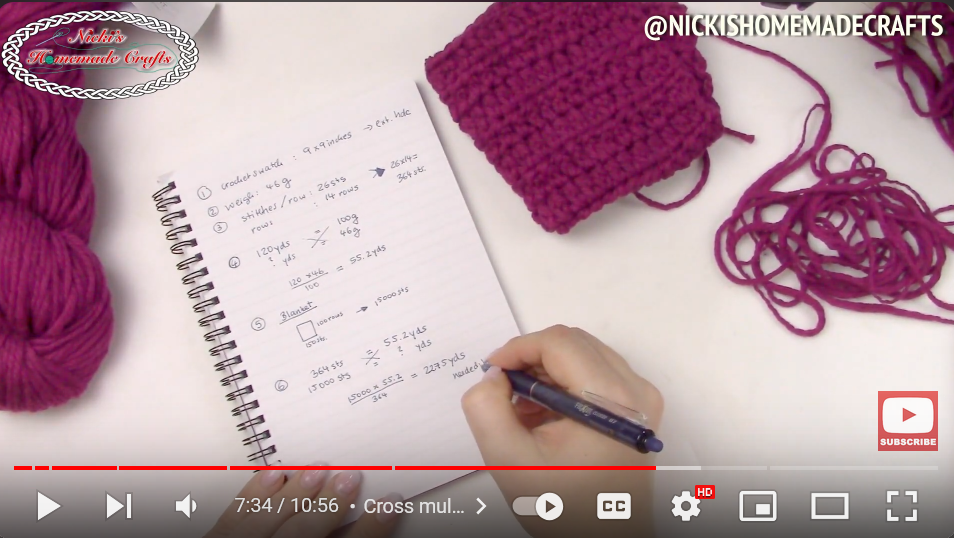 Nicki's
Homemade Crafts
@NICKISHOMEMADECRAFTS
① Crochet swatch : 9 x 9 inches → ext. hdc
② Weigh: 46 g
③ stitches / row : 26 sts → 26x14=
rows : 14 rows 364 sts
④ 120 yds = 100g
? yds = 46g
120 x 46 = 55.2 yds
100
⑤ Blanket
100 rows → 15000 sts
150 sts
⑥ 364 sts = 55.2 yds
15000 sts = ? yds
15000 x 55.2 = 2275 yds
364
needed
SUBSCRIBE
7:34 / 10:56 • Cross mul...
CC
HD